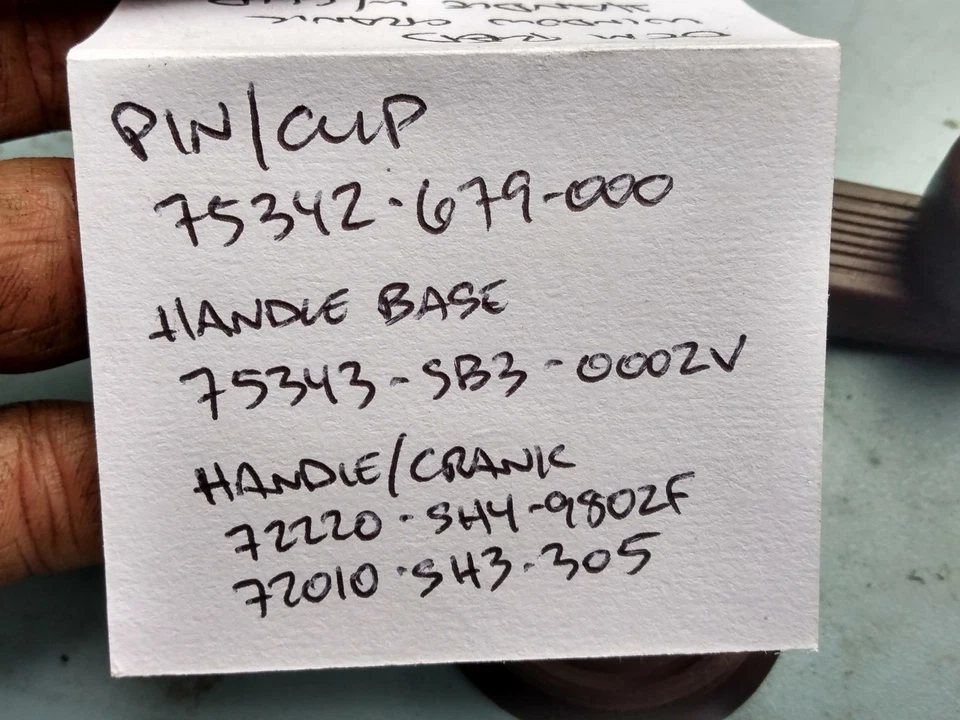 OEM RED
WINDOW CRANK
HANDLE W/CLIP
PIN/CLIP
75342-679-000
HANDLE BASE
75343-SB3-0002V
HANDLE/CRANK
72220-SH4-9802F
72010-SH3-305